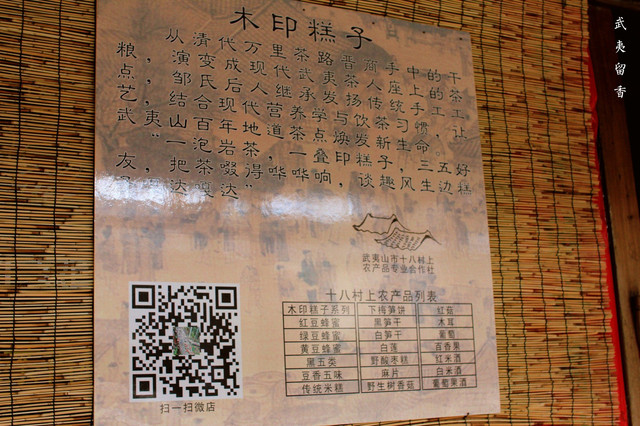 木印糕子
从清代万里茶路晋商手中的干
粮，演变成现代武夷茶人座上的茶
点，邹氏后人继承发扬传统手工
艺，结合现代营养学与饮茶习惯，让
武夷山百年地道茶点焕发新生命
一泡岩茶，一叠印糕子，三五好
友，把茶啜得“哗哗”响，谈趣风生边糕
达嘎达
武夷山市十八村上
农产品专业合作社
十八村上农产品列表
木印糕子系列 下梅笋饼 红菇
红豆蜂蜜 黑笋干 木耳
绿豆蜂蜜 白笋干 葡萄
黄豆蜂蜜 白莲 百香果
黑五类 野酸枣糕 红米酒
豆香五味 麻片 白米酒
传统米糕 野生树香菇 葡萄果酒
扫一扫微店
武夷留香